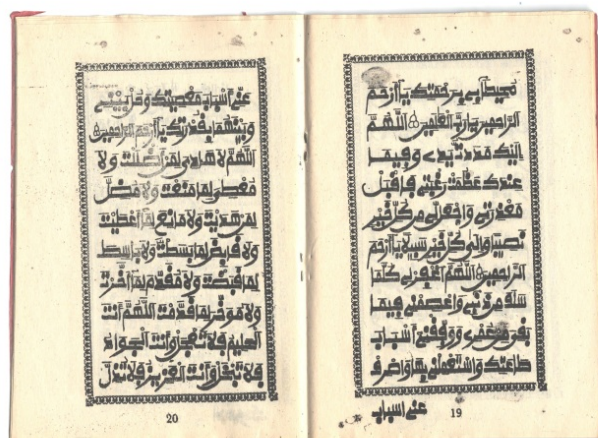 محيطا بي برحمتك يا أرحم
الراحمين يا رب العلمين اللهم
إليك مددت يدي وفيما
عندك عظمت رغبتي فاقبل
معذرتي واجعل لي من كل خير
نصيبا وإلى كل خير سبيلا يا أرحم
الراحمين اللهم اغفر لي كلما
سلف من ذنبي واعصمني فيما
بقي من عمري ووفقني أسباب
طاعتك واستعملني بها واصرف
عني أسباب
19
عني أسباب معصيتك وحل بيني
وبينهما بقدرتك يا أرحم الراحمين
اللهم لا هادي لمن أضللت ولا
معطي لما منعت ولا مضل
لمن هديت ولا مانع لما أعطيت
ولا قابض لما بسطت ولا باسط
لما قبضت ولا مقدم لما أخرت
ولا مؤخر لما قدمت اللهم أنت
الحليم فلا تعجل وأنت الجواد
فلا تبخل وأنت العزيز فلا تذل
20